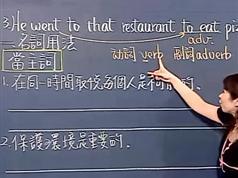 3.He went to that restaurant to eat piz
adv.
名詞用法 动詞 verb 副詞 adverb
當主詞
1.在同一時間取悅每個人是不可能的.
2.保護環境是重要的.